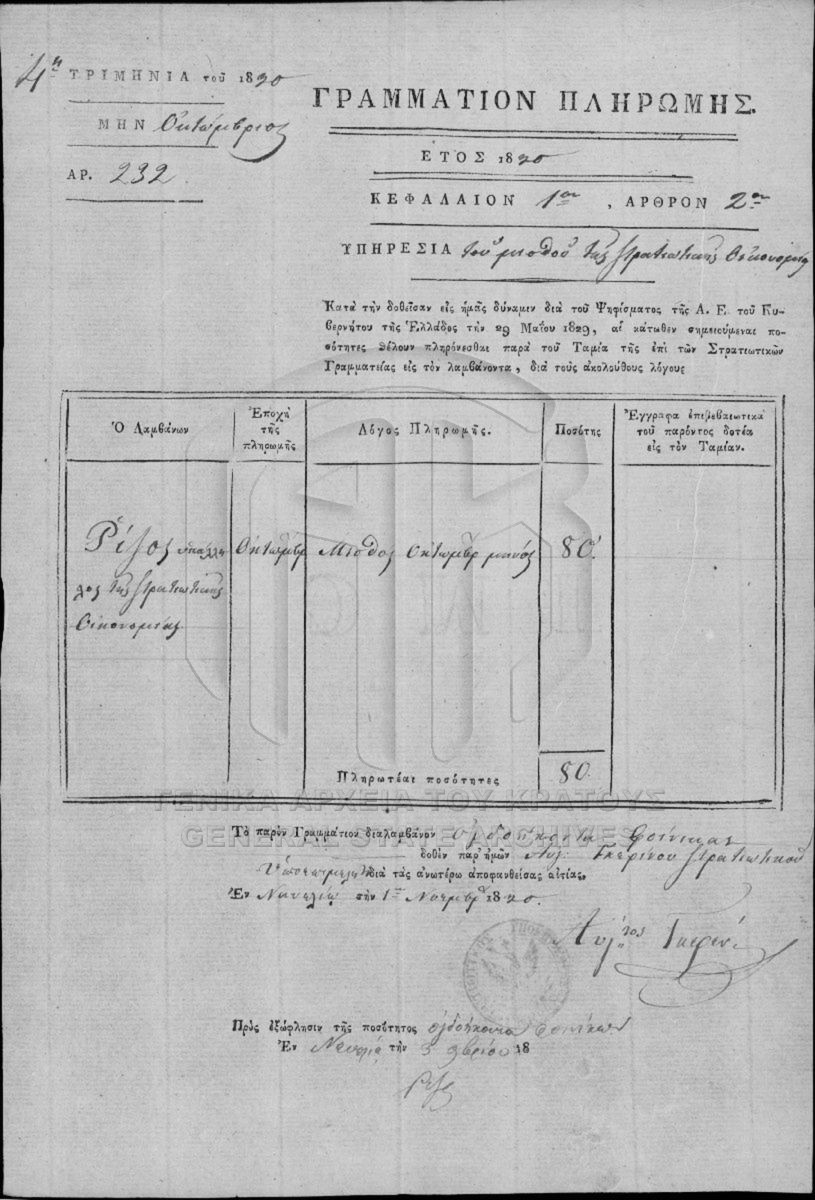 4η ΤΡΙΜΗΝΙΑ τοῦ 1830
ΜΗΝ Ὀκτώμβριος
ΑΡ. 232
ΓΡΑΜΜΑΤΙΟΝ ΠΛΗΡΩΜΗΣ.
ΕΤΟΣ 1830
ΚΕΦΑΛΑΙΟΝ 1ον, ΑΡΘΡΟΝ 2ον
ΥΠΗΡΕΣΙΑ τοῦ μισθοῦ τῆς στρατιωτικῆς Οἰκονομίας
Κατὰ τὴν δοθεῖσαν εἰς ἡμᾶς δύναμιν διὰ τοῦ Ψηφίσματος τῆς Α. Ε. τοῦ Κυ-
βερνήτου τῆς Ἑλλάδος τὴν 29 Μαΐου 1829, αἱ κάτωθεν σημειούμεναι πο-
σότητες θέλουν πληρόνεσθαι παρὰ τοῦ Ταμία τῆς ἐπὶ τῶν Στρατιωτικῶν
Γραμματείας εἰς τὸν λαμβάνοντα, διὰ τοὺς ἀκολούθους λόγους
Ὁ Λαμβάνων
Ἐποχὴ
τῆς
πληρωμῆς
Λόγος Πληρωμῆς.
Ποσότης
Ἔγγραφα ἐπιβεβαιωτικὰ
τοῦ παρόντος δοτέα
εἰς τὸν Ταμίαν.
Ῥίζος ὑπάλλη
λος τῆς στρατιωτικῆς
Οἰκονομίας
Ὀκτωμβρ
Μισθὸς Ὀκτωμβρ μηνός
80.
Πληρωτέαι ποσότητες
80.
ΓΕΝΙΚΑ ΑΡΧΕΙΑ ΤΟΥ ΚΡΑΤΟΥΣ
GENERAL STATE ARCHIVES
Τὸ παρὸν Γραμμάτιον διαλαμβάνον ὀγδοήκοντα Φοίνικας
δοθὲν παρ' ἡμῶν Αὐγ. Γκερίνου στρατιωτικοῦ
διὰ τὰς ἀνωτέρω ἀποφανθείσας αἰτίας.
Ἐν Ναυπλίῳ τὴν 1 Νοεμβρ 1830.
Πρὸς ἐξώφλησιν τῆς ποσότητος ὀγδοήκοντα φοινίκων
Ἐν Ναυπλίῳ τὴν 3 9βρίου 18